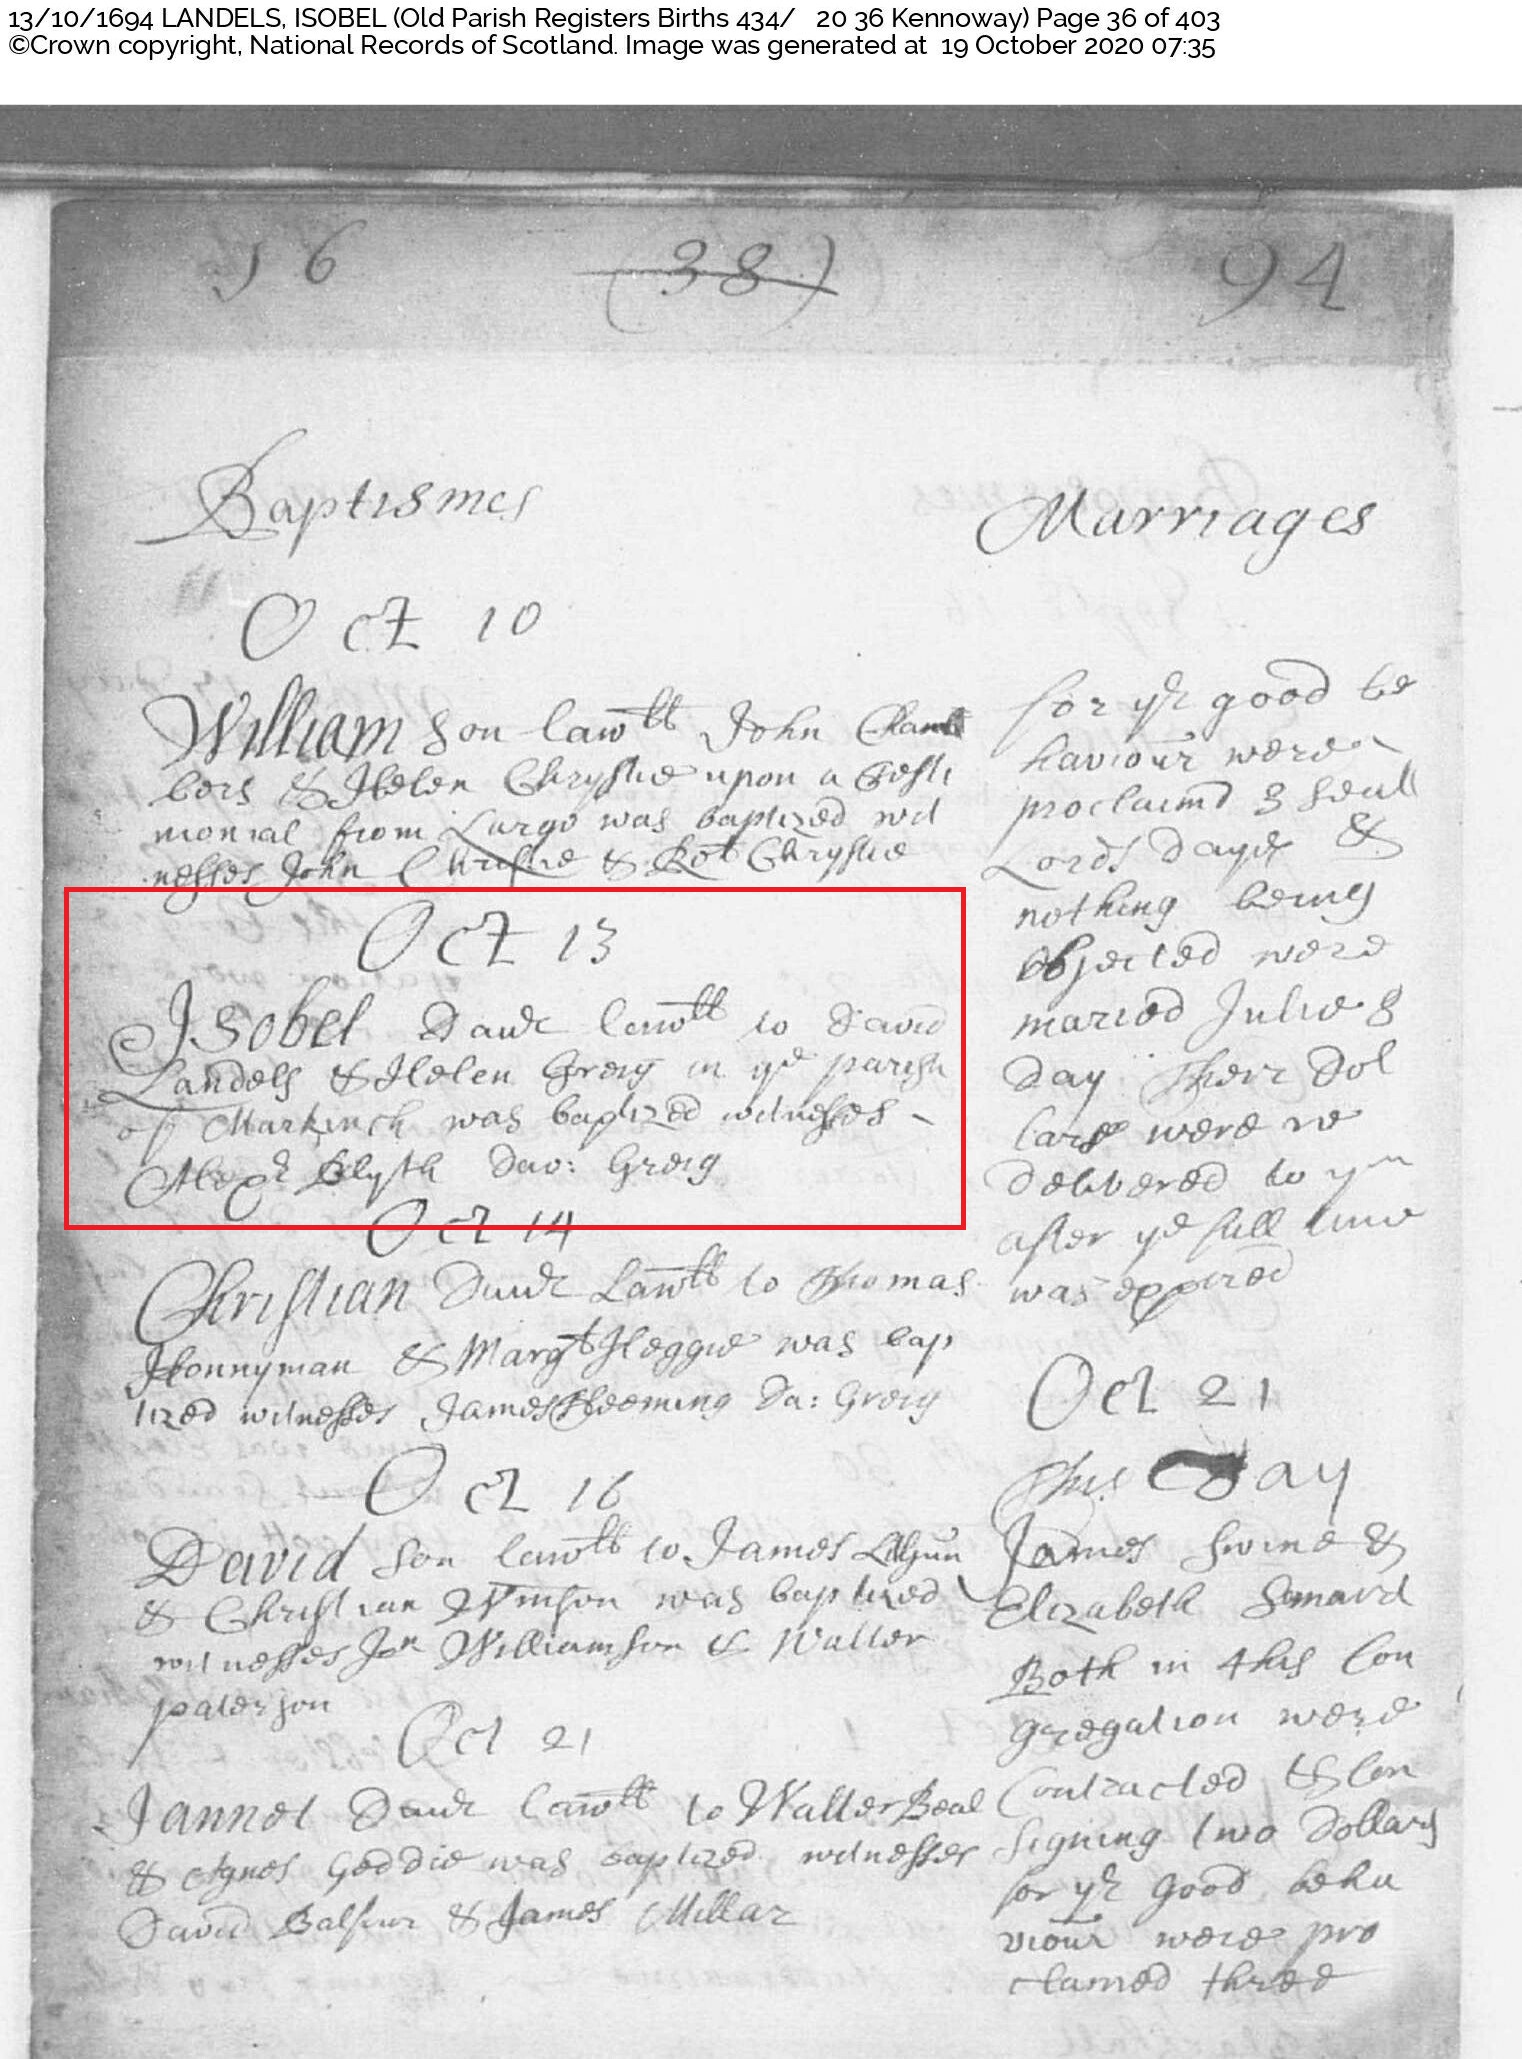 13/10/1694 LANDELS, ISOBEL (Old Parish Registers Births 434/ 20 36 Kennoway) Page 36 of 403
©Crown copyright, National Records of Scotland. Image was generated at 19 October 2020 07:35
16 (38) 94
Baptismes
Oct 10
William Son lawtt John Cham
bers & Helen Chrystie upon a Testi
monial from Largo was baptized wit
nesses John Christie & Rot Chrystie
Oct 13
Isobel Daur lawtt to David
Landels & Helen Greig in ye parish
of Markinch was baptized witnesses
Alexr Blyth Dav: Greig
Oct 14
Christian Daur Lawtt to Thomas
Honnyman & Margt Heggie was bap
tized witnesses James Fleeming Da: Greig
Oct 16
David Son lawtt to James
& Christian was baptized
witnesses Jon Williamson & Walter
paterson
Oct 21
Jannet Daur lawtt to Walter Beal
& Agnes Geddie was baptized witnesses
David Balfour & James Millar
Marriages
for yr good be
haviour were
proclaimd 3 Seall
Lords dayes &
nothing being
objected were
maried Julie 8
day Their dol
lars were re
delivered to ym
after ye full time
was expired
Oct 21
This Day
James &
Elizabeth
Both in this Con
gregation were
Contracted & Con
signing two Dollars
for yr good beha
viour were pro
clamed three